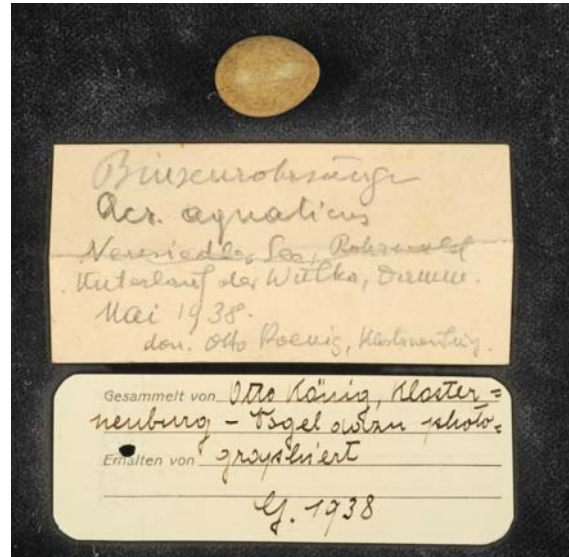 Binsenrohrsänger
Acr. aquaticus
Neusiedler See, Rohrwald
Unterlauf der Wulka, Damm.
Mai 1938.
don. Otto Koenig, Klosterneuburg.
Gesammelt von Otto König, Kloster=
neuburg – Vogel dazu photo=
Erhalten von graphiert
G. 1938